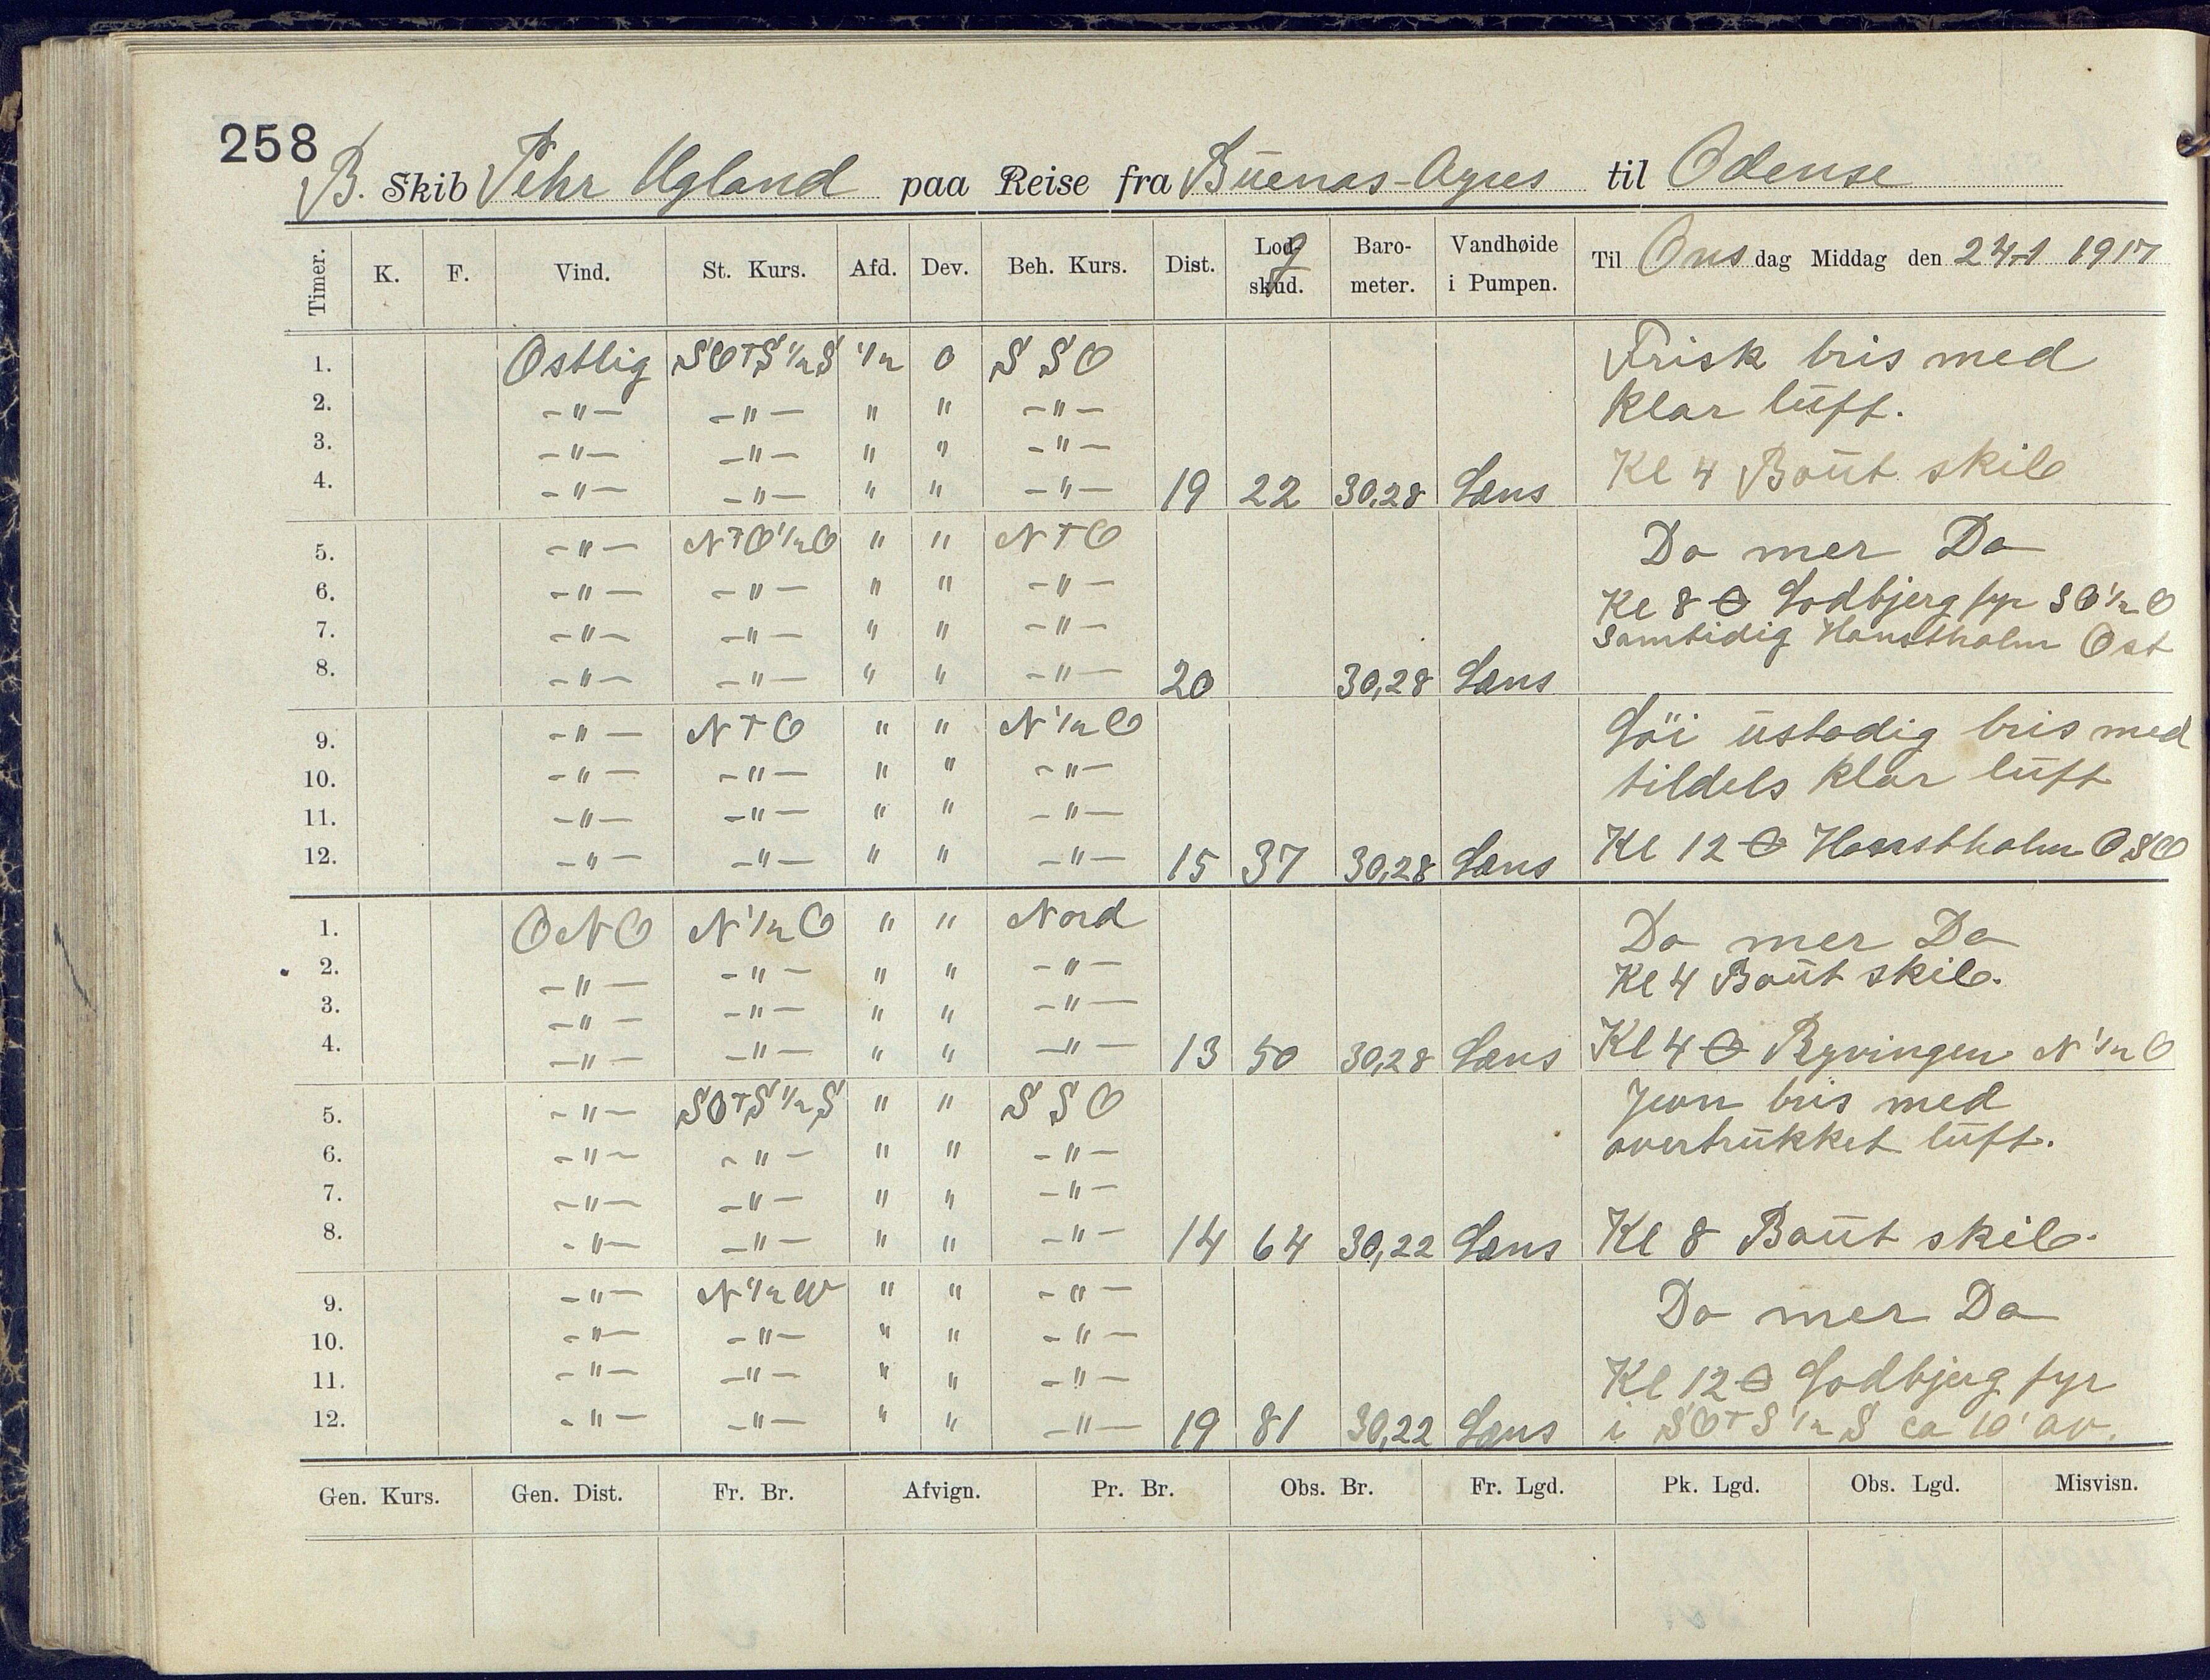 258
B. Skib Pehr Ugland paa Reise fra Buenas-Ayres til Odense
Timer. K. F. Vind. St. Kurs. Afd. Dev. Beh. Kurs. Dist. Lodskud. g Barometer. Vandhøide i Pumpen. Til Ons dag Middag den 24-1 1917
1. Ostlig SOTS½S ½ 0 SSO Frisk bris med
2. -"- -"- " " -"- klar luft.
3. -"- -"- " " -"-
4. -"- -"- " " -"- 19 22 30,28 Læns Kl 4 Baut skib
5. -"- NTO½O " " NTO Do mer Do
6. -"- -"- " " -"- Kl 8 Lodbjerg fyr SO½O
7. -"- -"- " " -"- samtidig Hanstholm Ost
8. -"- -"- " " -"- 20 30,28 Læns
9. -"- NTO " " N½O Löi ustadig bris med
10. -"- -"- " " -"- tildels klar luft
11. -"- -"- " " -"-
12. -"- -"- " " -"- 15 37 30,28 Læns Kl 12 Hanstholm OSO
1. ONO N½O " " Nord Do mer Do
2. -"- -"- " " -"- Kl 4 Baut skib.
3. -"- -"- " " -"-
4. -"- -"- " " -"- 13 50 30,28 Læns Kl 4 Ryvingen N½O
5. -"- SOTS½S " " SSO Jevn bris med
6. -"- -"- " " -"- overtrukket luft.
7. -"- -"- " " -"-
8. -"- -"- " " -"- 14 64 30,22 Læns Kl 8 Baut skib.
9. -"- N½W " " -"- Do mer Do
10. -"- -"- " " -"-
11. -"- -"- " " -"- Kl 12 Lodbjerg fyr
12. -"- -"- " " -"- 19 81 30,22 Læns i SOTS½S ca 10' av.
Gen. Kurs. Gen. Dist. Fr. Br. Afvign. Pr. Br. Obs. Br. Fr. Lgd. Pk. Lgd. Obs. Lgd. Misvisn.